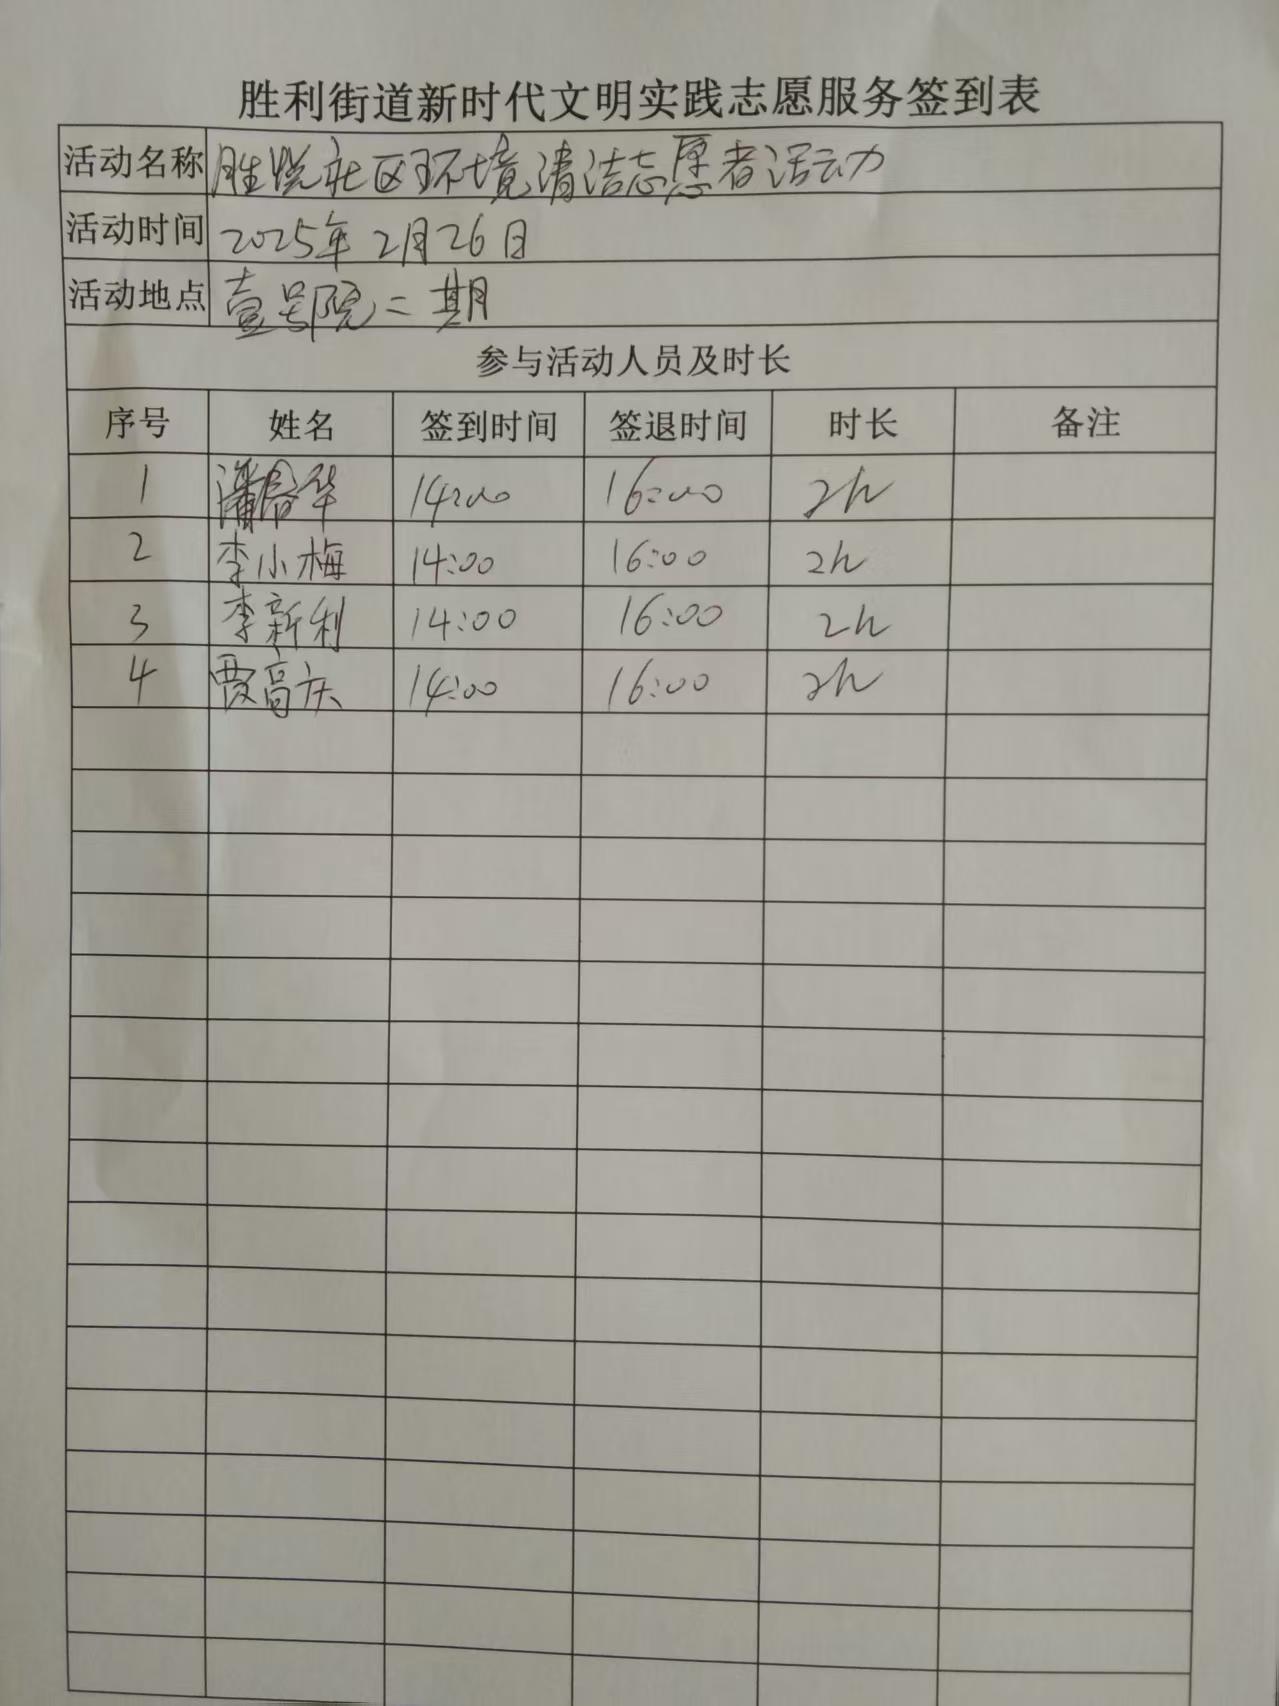 胜利街道新时代文明实践志愿服务签到表
活动名称 胜悦社区环境清洁志愿者活动
活动时间 2025年2月26日
活动地点 壹号院二期
参与活动人员及时长
序号 姓名 签到时间 签退时间 时长 备注
1 潘 华 14:00 16:00 2h
2 李小梅 14:00 16:00 2h
3 李新利 14:00 16:00 2h
4 贾高庆 14:00 16:00 2h